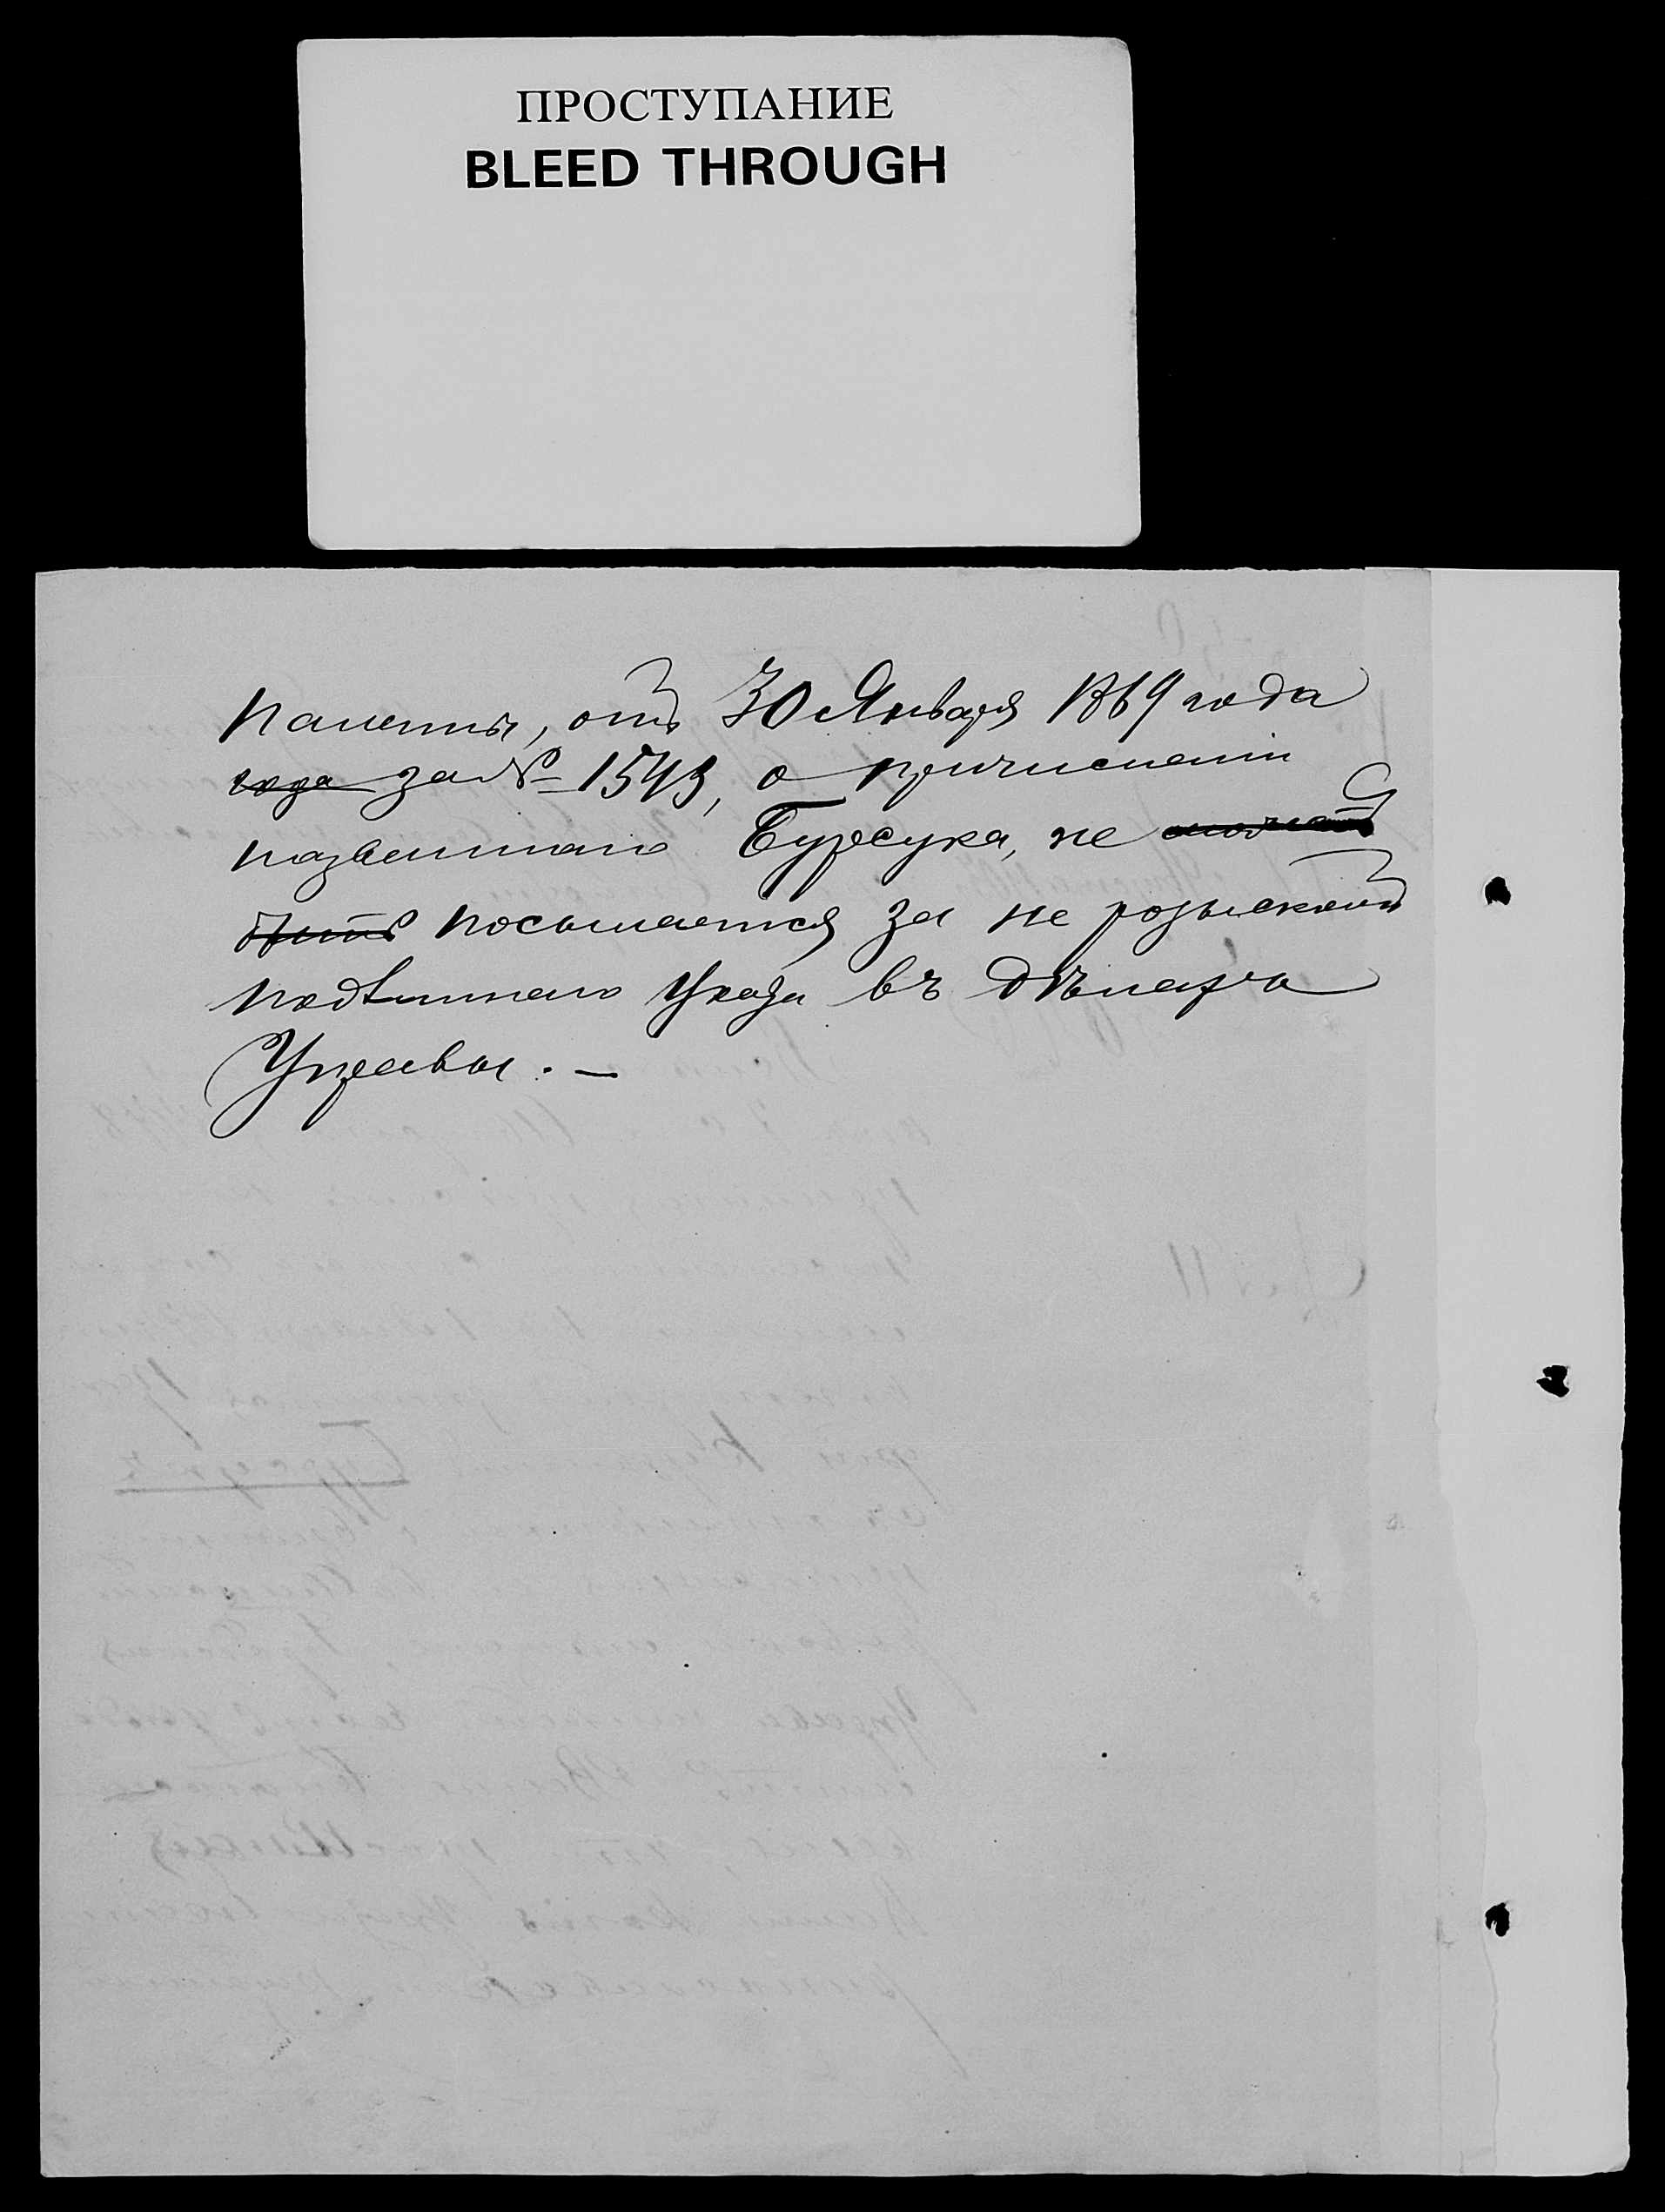 ПРОСТУПАНИЕ
BLEED THROUGH
Палеты, отъ 30 Января 1869 года
года за № 1543, о причислении
названнаго Бурсука, не можетъ
быть посылается за не розыскомъ
подлиннаго Указа въ дѣлахъ
Управы. —